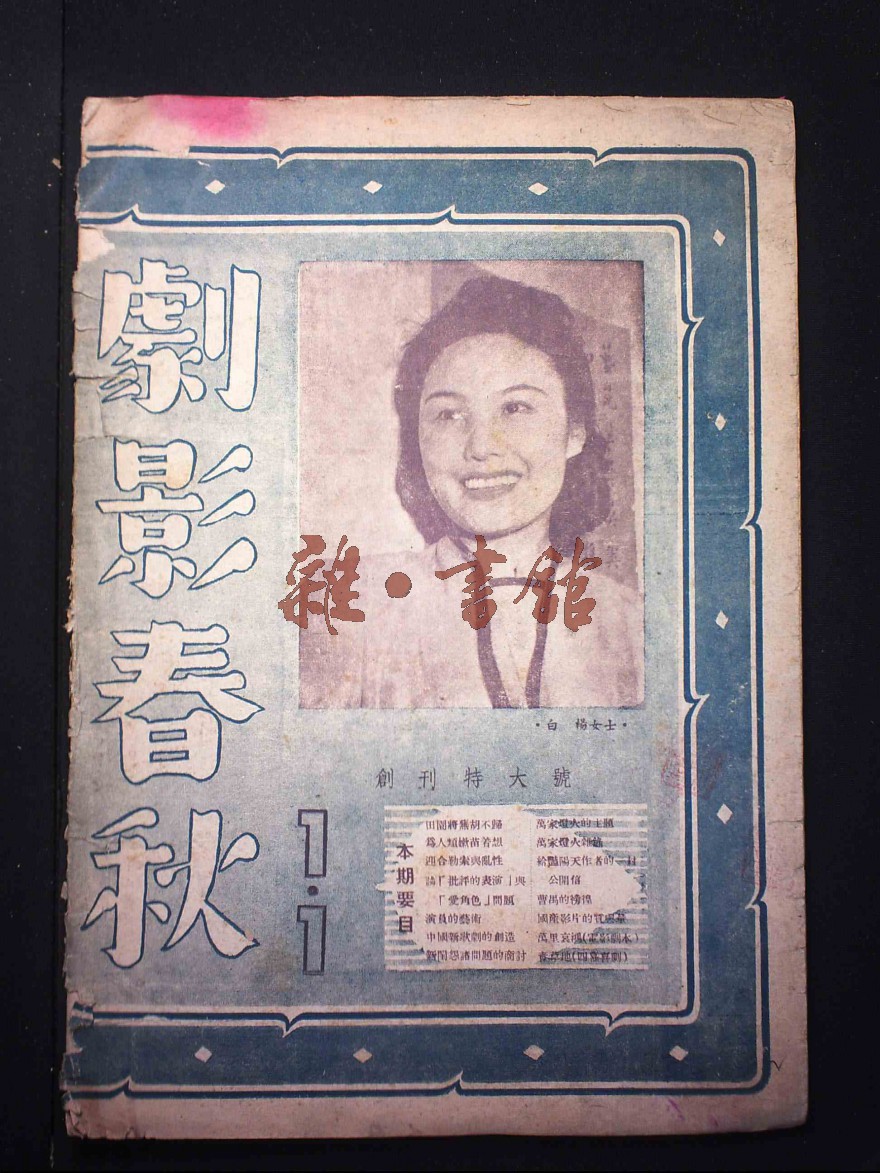 劇影春秋
雜·書館
·白 楊女士·
創刊特大號
1·1
本期要目
田園將蕪胡不歸
為人類嫩苗著想
迎合勒索與亂性
論「批評的表演」與
「愛角色」問題
演員的藝術
中國新歌劇的創造
新聞 諸問題的商討
萬家燈火的主題
萬家燈火雜
給豔陽天作者的一封
公開信
曹禺的徬徨
國產影片的
萬里哀鴻(電影劇本)
青草地(四幕喜劇)